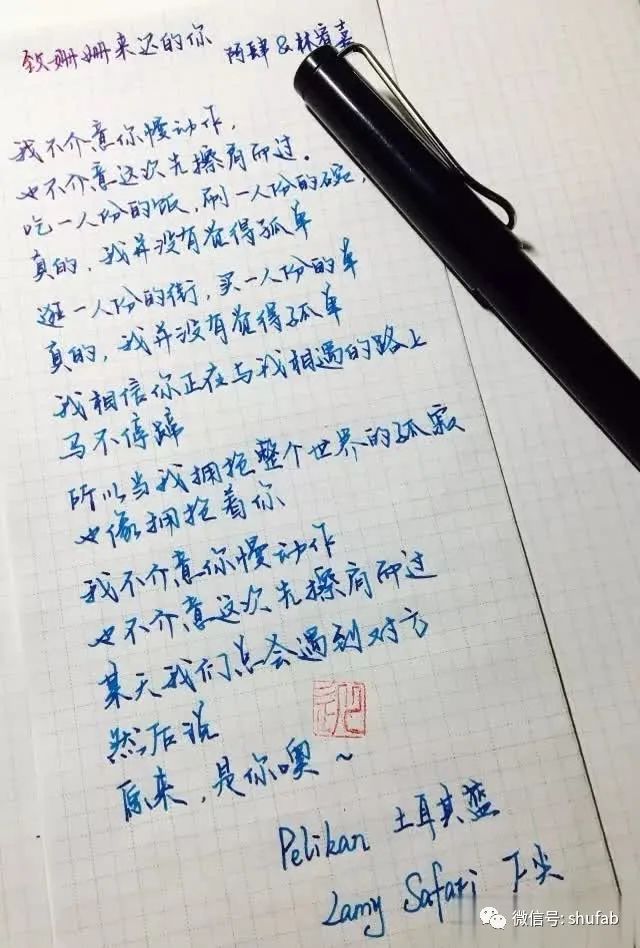 致姗姗来迟的你 阿肆&林宥嘉
我不介意你慢动作，
也不介意这次先擦肩而过。
吃一人份的饭，刷一人份的碗，
真的，我并没有觉得孤单
逛一人份的街，买一人份的单
真的，我并没有觉得孤单
我相信你正在与我相遇的路上
马不停蹄
所以当我拥抱整个世界的孤寂
也像拥抱着你
我不介意你慢动作
也不介意这次先擦肩而过
某天我们总会遇到对方
然后说
原来，是你噢～
Pelikan 土耳其蓝
Lamy Safari F尖
微信号: shufab